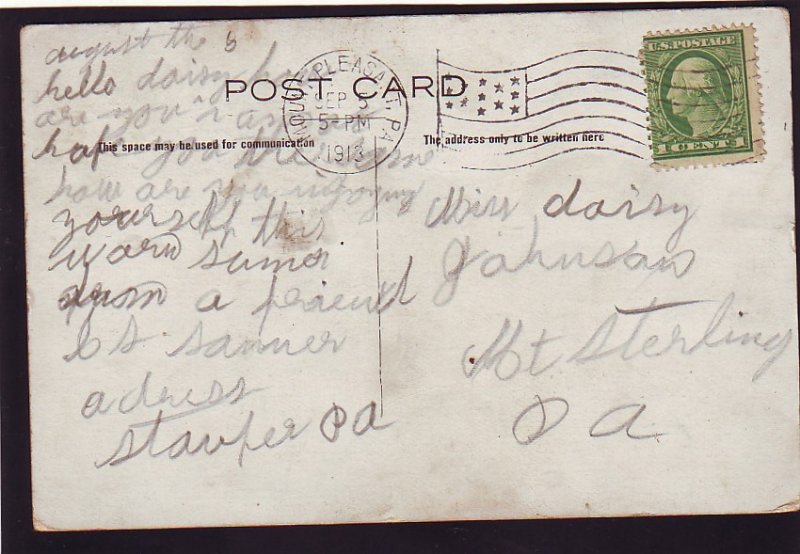 august the 5
hello daisy how
are you
hope you
how are you injoying
yourself this
warm sumor
from a frieind
S Sanner
adress
staufer Pa
POST CARD
This space may be used for communication
The address only to be written here
MOUNT PLEASANT, PA.
SEP 5
5-PM
1913
U.S. POSTAGE
1 CENT 1
Miss daisy
Johnson
Mt Sterling
Pa